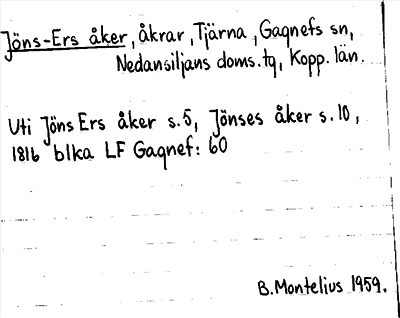 Jöns-Ers åker, åkrar, Tjärna, Gagnefs sn,
Nedansiljans doms.tg, Kopp. län.
Uti Jöns Ers åker s.5, Jönses åker s.10,
1816 blka LF Gagnef: 60
B. Montelius 1959.